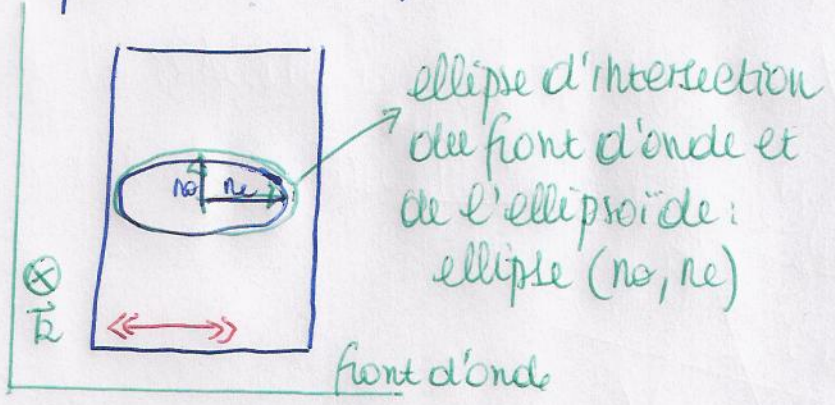 ellipse d'intersection
du front d'onde et
de l'ellipsoïde :
no ne
ellipse (no, ne)
k
front d'onde